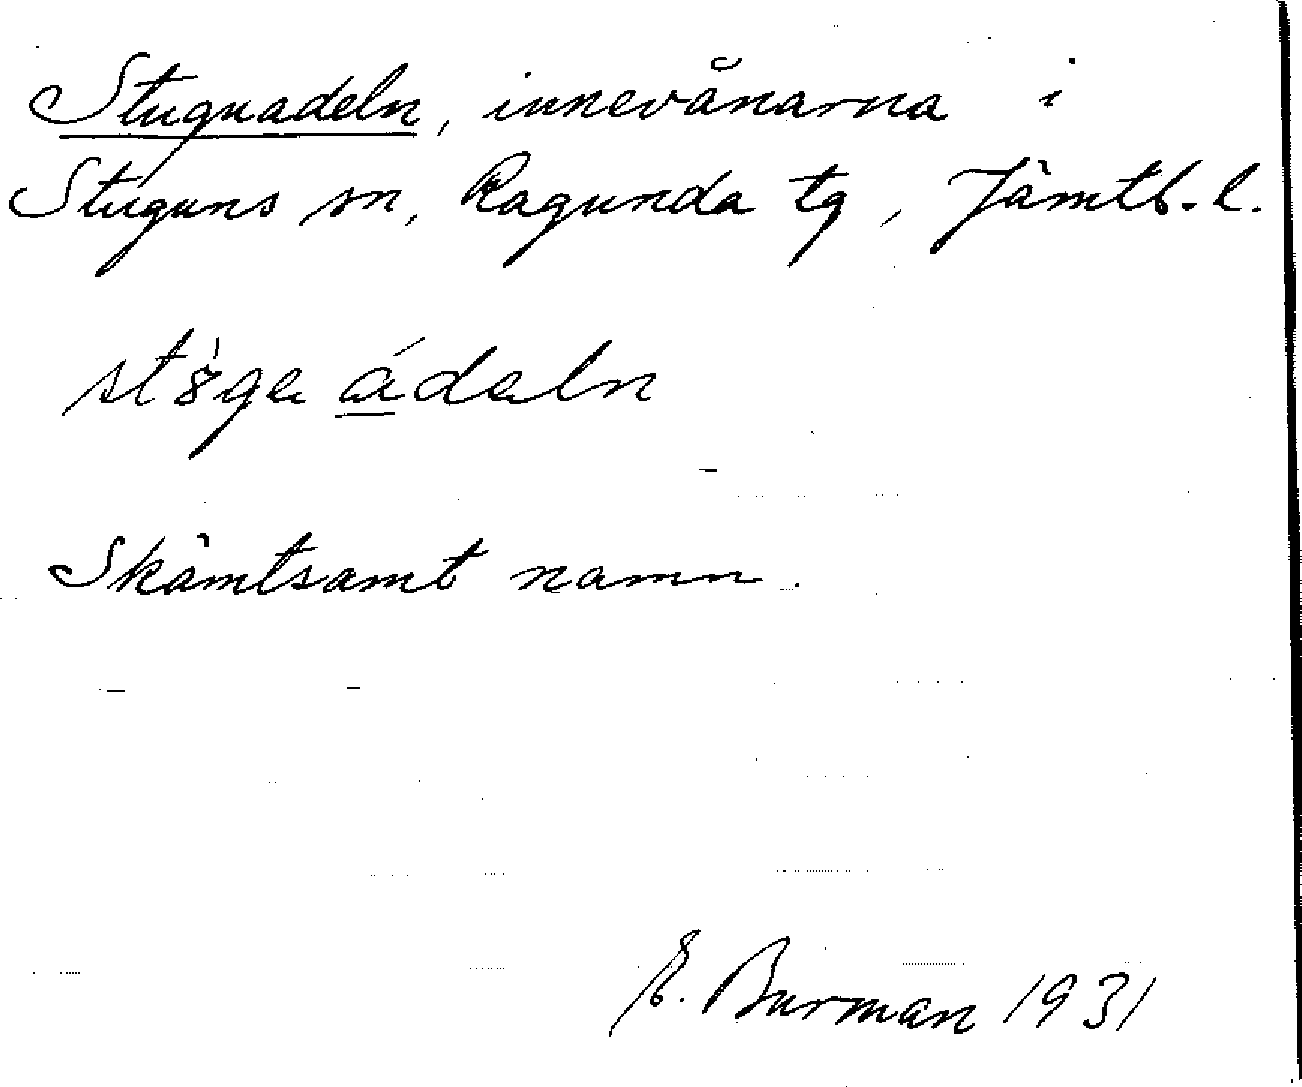 Stugnadeln, innevånarna i
Stuguns sn, Ragunda tg, Jämtl. l.
adeln
Skämtsamt namn.
E. Burman 1931